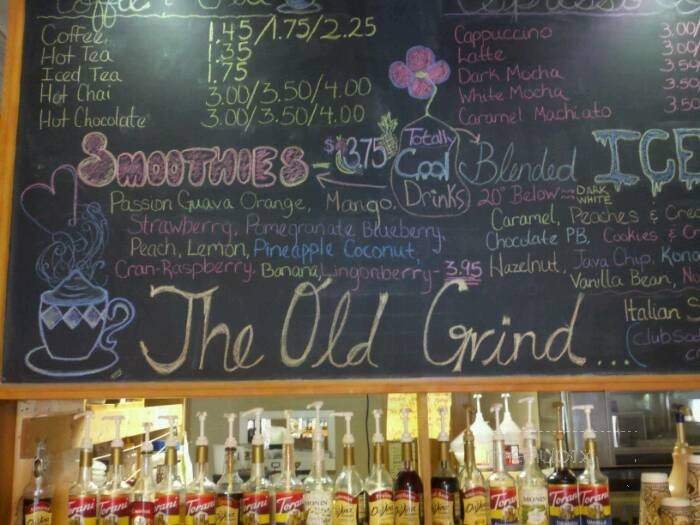 Coffee
Coffee 1.45/1.75/2.25
Hot Tea 1.35
Iced Tea 1.75
Hot Chai 3.00/3.50/4.00
Hot Chocolate 3.00/3.50/4.00
Espresso
Cappuccino 3.00/
Latte 3.00/
Dark Mocha 3.50
White Mocha 3.50
Caramel Machiato 3.50
SMOOTHIES - $3.75
Passion Guava Orange, Mango,
Strawberry, Pomegranate Blueberry,
Peach, Lemon, Pineapple Coconut,
Cran-Raspberry, Banana, Lingonberry - 3.95
Totally
Cool
Drinks
Blended ICE
20° Below DARK
WHITE
Caramel, Peaches &
Chocolate PB, Cookies &
Hazelnut, Java Chip, Kona
Vanilla Bean,
The Old Grind...
Italian S
(club
Torani
Torani
Torani
Torani
Torani
Torani
Torani
MONIN
Torani
Torani
MONIN
Torani
Torani